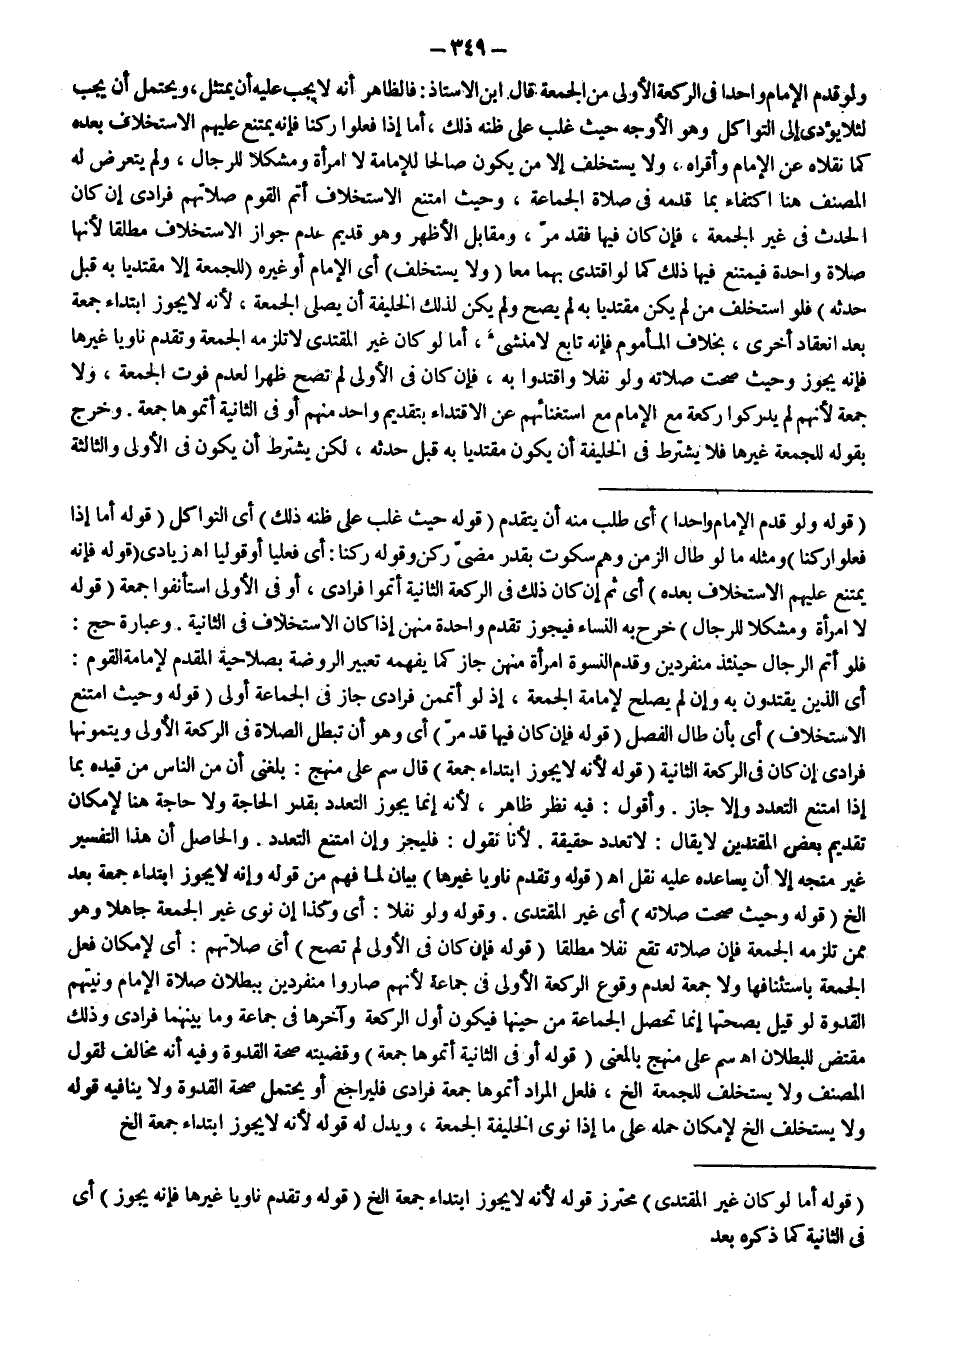 – ٣٤٩ –
ولو قدم الإمام واحدا فى الركعة الأولى من الجمعة قال ابن الاستاذ : فالظاهر أنه لا يجب عليه أن يمتثل ، ويحتمل أن يجب
لئلا يؤدى إلى التواكل وهو الأوجه حيث غلب على ظنه ذلك ، أما إذا فعلوا ركنا فإنه يمتنع عليهم الاستخلاف بعده
كما نقلاه عن الإمام وأقراه ، ولا يستخلف إلا من يكون صالحا للإمامة لا امرأة ومشكلا للرجال ، ولم يتعرض له
المصنف هنا اكتفاء بما قدمه فى صلاة الجماعة ، وحيث امتنع الاستخلاف أتم القوم صلاتهم فرادى إن كان
الحدث فى غير الجمعة ، فإن كان فيها فقد مرّ ، ومقابل الأظهر وهو قديم عدم جواز الاستخلاف مطلقا لأنها
صلاة واحدة فيمتنع فيها ذلك كما لو اقتدى بهما معا ( ولا يستخلف) أى الإمام أو غيره (للجمعة إلا مقتديا به قبل
حدثه ) فلو استخلف من لم يكن مقتديا به لم يصح ولم يكن لذلك الخليفة أن يصلى الجمعة ، لأنه لا يجوز ابتداء جمعة
بعد انعقاد أخرى ، بخلاف المأموم فإنه تابع لا منشىء ، أما لو كان غير المقتدى لا تلزمه الجمعة وتقدم ناويا غيرها
فإنه يجوز وحيث صحت صلاته ولو نفلا واقتدوا به ، فإن كان فى الأولى لم تصح ظهرا لعدم فوت الجمعة ، ولا
جمعة لأنهم لم يدركوا ركعة مع الإمام مع استغنائهم عن الاقتداء بتقديم واحد منهم أو فى الثانية أتموها جمعة . وخرج
بقوله للجمعة غيرها فلا يشترط فى الخليفة أن يكون مقتديا به قبل حدثه ، لكن يشترط أن يكون فى الأولى والثالثة
( قوله ولو قدم الإمام واحدا ) أى طلب منه أن يتقدم ( قوله حيث غلب على ظنه ذلك ) أى التواكل ( قوله أما إذا
فعلوا ركنا ) ومثله ما لو طال الزمن وهم سكوت بقدر مضىّ ركن وقوله ركنا : أى فعليا أو قوليا اه زيادى (قوله فإنه
يمتنع عليهم الاستخلاف بعده ) أى ثم إن كان ذلك فى الركعة الثانية أتموا فرادى ، أو فى الأولى استأنفوا جمعة ( قوله
لا امرأة ومشكلا للرجال ) خرج به النساء فيجوز تقدم واحدة منهن إذا كان الاستخلاف فى الثانية . وعبارة حج :
فلو أتم الرجال حينئذ منفردين وقدم النسوة امرأة منهن جاز كما يفهمه تعبير الروضة بصلاحية المقدم لإمامة القوم :
أى الذين يقتدون به وإن لم يصلح لإمامة الجمعة ، إذ لو أتممن فرادى جاز فى الجماعة أولى ( قوله وحيث امتنع
الاستخلاف ) أى بأن طال الفصل ( قوله فإن كان فيها قد مرّ ) أى وهو أن تبطل الصلاة فى الركعة الأولى ويتمونها
فرادى إن كان فى الركعة الثانية ( قوله لأنه لا يجوز ابتداء جمعة ) قال سم على منهج : بلغنى أن من الناس من قيده بما
إذا امتنع التعدد وإلا جاز . وأقول : فيه نظر ظاهر ، لأنه إنما يجوز التعدد بقدر الحاجة ولا حاجة هنا لإمكان
تقديم بعض المقتدين لا يقال : لا تعدد حقيقة . لأنا نقول : فليجز وإن امتنع التعدد . والحاصل أن هذا التفسير
غير متجه إلا أن يساعده عليه نقل اه ( قوله وتقدم ناويا غيرها ) بيان لما فهم من قوله وإنه لا يجوز ابتداء جمعة بعد
الخ ( قوله وحيث صحت صلاته ) أى غير المقتدى . وقوله ولو نفلا : أى وكذا إن نوى غير الجمعة جاهلا وهو
ممن تلزمه الجمعة فإن صلاته تقع نفلا مطلقا ( قوله فإن كان فى الأولى لم تصح ) أى صلاتهم : أى لإمكان فعل
الجمعة باستئنافها ولا جمعة لعدم وقوع الركعة الأولى فى جماعة لأنهم صاروا منفردين ببطلان صلاة الإمام ونيتهم
القدوة لو قيل بصحتها إنما تحصل الجماعة من حينها فيكون أول الركعة وآخرها فى جماعة وما بينهما فرادى وذلك
مقتض للبطلان اه سم على منهج بالمعنى ( قوله أو فى الثانية أتموها جمعة ) وقضيته صحة القدوة وفيه أنه مخالف لقول
المصنف ولا يستخلف للجمعة الخ ، فلعل المراد أتموها جمعة فرادى فليراجع أو يحتمل صحة القدوة ولا ينافيه قوله
ولا يستخلف الخ لإمكان حمله على ما إذا نوى الخليفة الجمعة ، ويدل له قوله لأنه لا يجوز ابتداء جمعة الخ
( قوله أما لو كان غير المقتدى ) محترز قوله لأنه لا يجوز ابتداء جمعة الخ ( قوله وتقدم ناويا غيرها فإنه يجوز ) أى
فى الثانية كما ذكره بعد